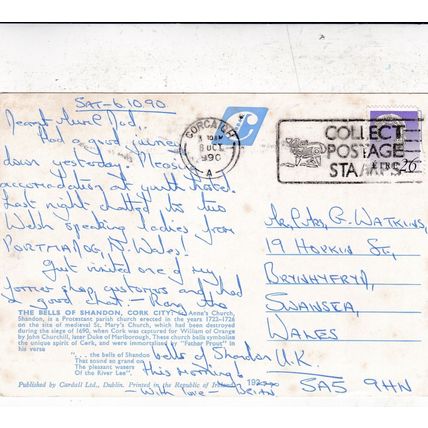 SAT-6.10.90
Dearest Murel Dad...
Had a good journey
down yesterday. Pleasant
accomodation at youth hotel.
Last night chatted to two
Welsh speaking ladies from
PORTMADOG, N. Wales!
Just visited one of my
former shop customers and had
a good chat - Rang the
THE BELLS OF SHANDON, CORK CITY: St. Anne's Church,
Shandon, is a Protestant parish church erected in the years 1722-1726
on the site of medieval St. Mary's Church, which had been destroyed
during the siege of 1690, when Cork was captured for William of Orange
by John Churchill, later Duke of Marlborough. These church bells symbolise
the unique spirit of Cork, and were immortalised by "Father Prout" in
his verse
". . . the bells of Shandon
That sound so grand on
The pleasant waters
Of the River Lee".
bells of Shandon
this morning!
- With love - BRIAN
Published by Cardall Ltd., Dublin. Printed in the Republic of Ireland.
CORCAIGH
8 OCT
1990
A
COLLECT
POSTAGE
STAMPS
ÉIRE 26
Mr. & Mrs. G. WATKINS,
19 HOPKIN ST.,
BRYNHYFRYD,
SWANSEA,
WALES
U.K.
SA5 9HN